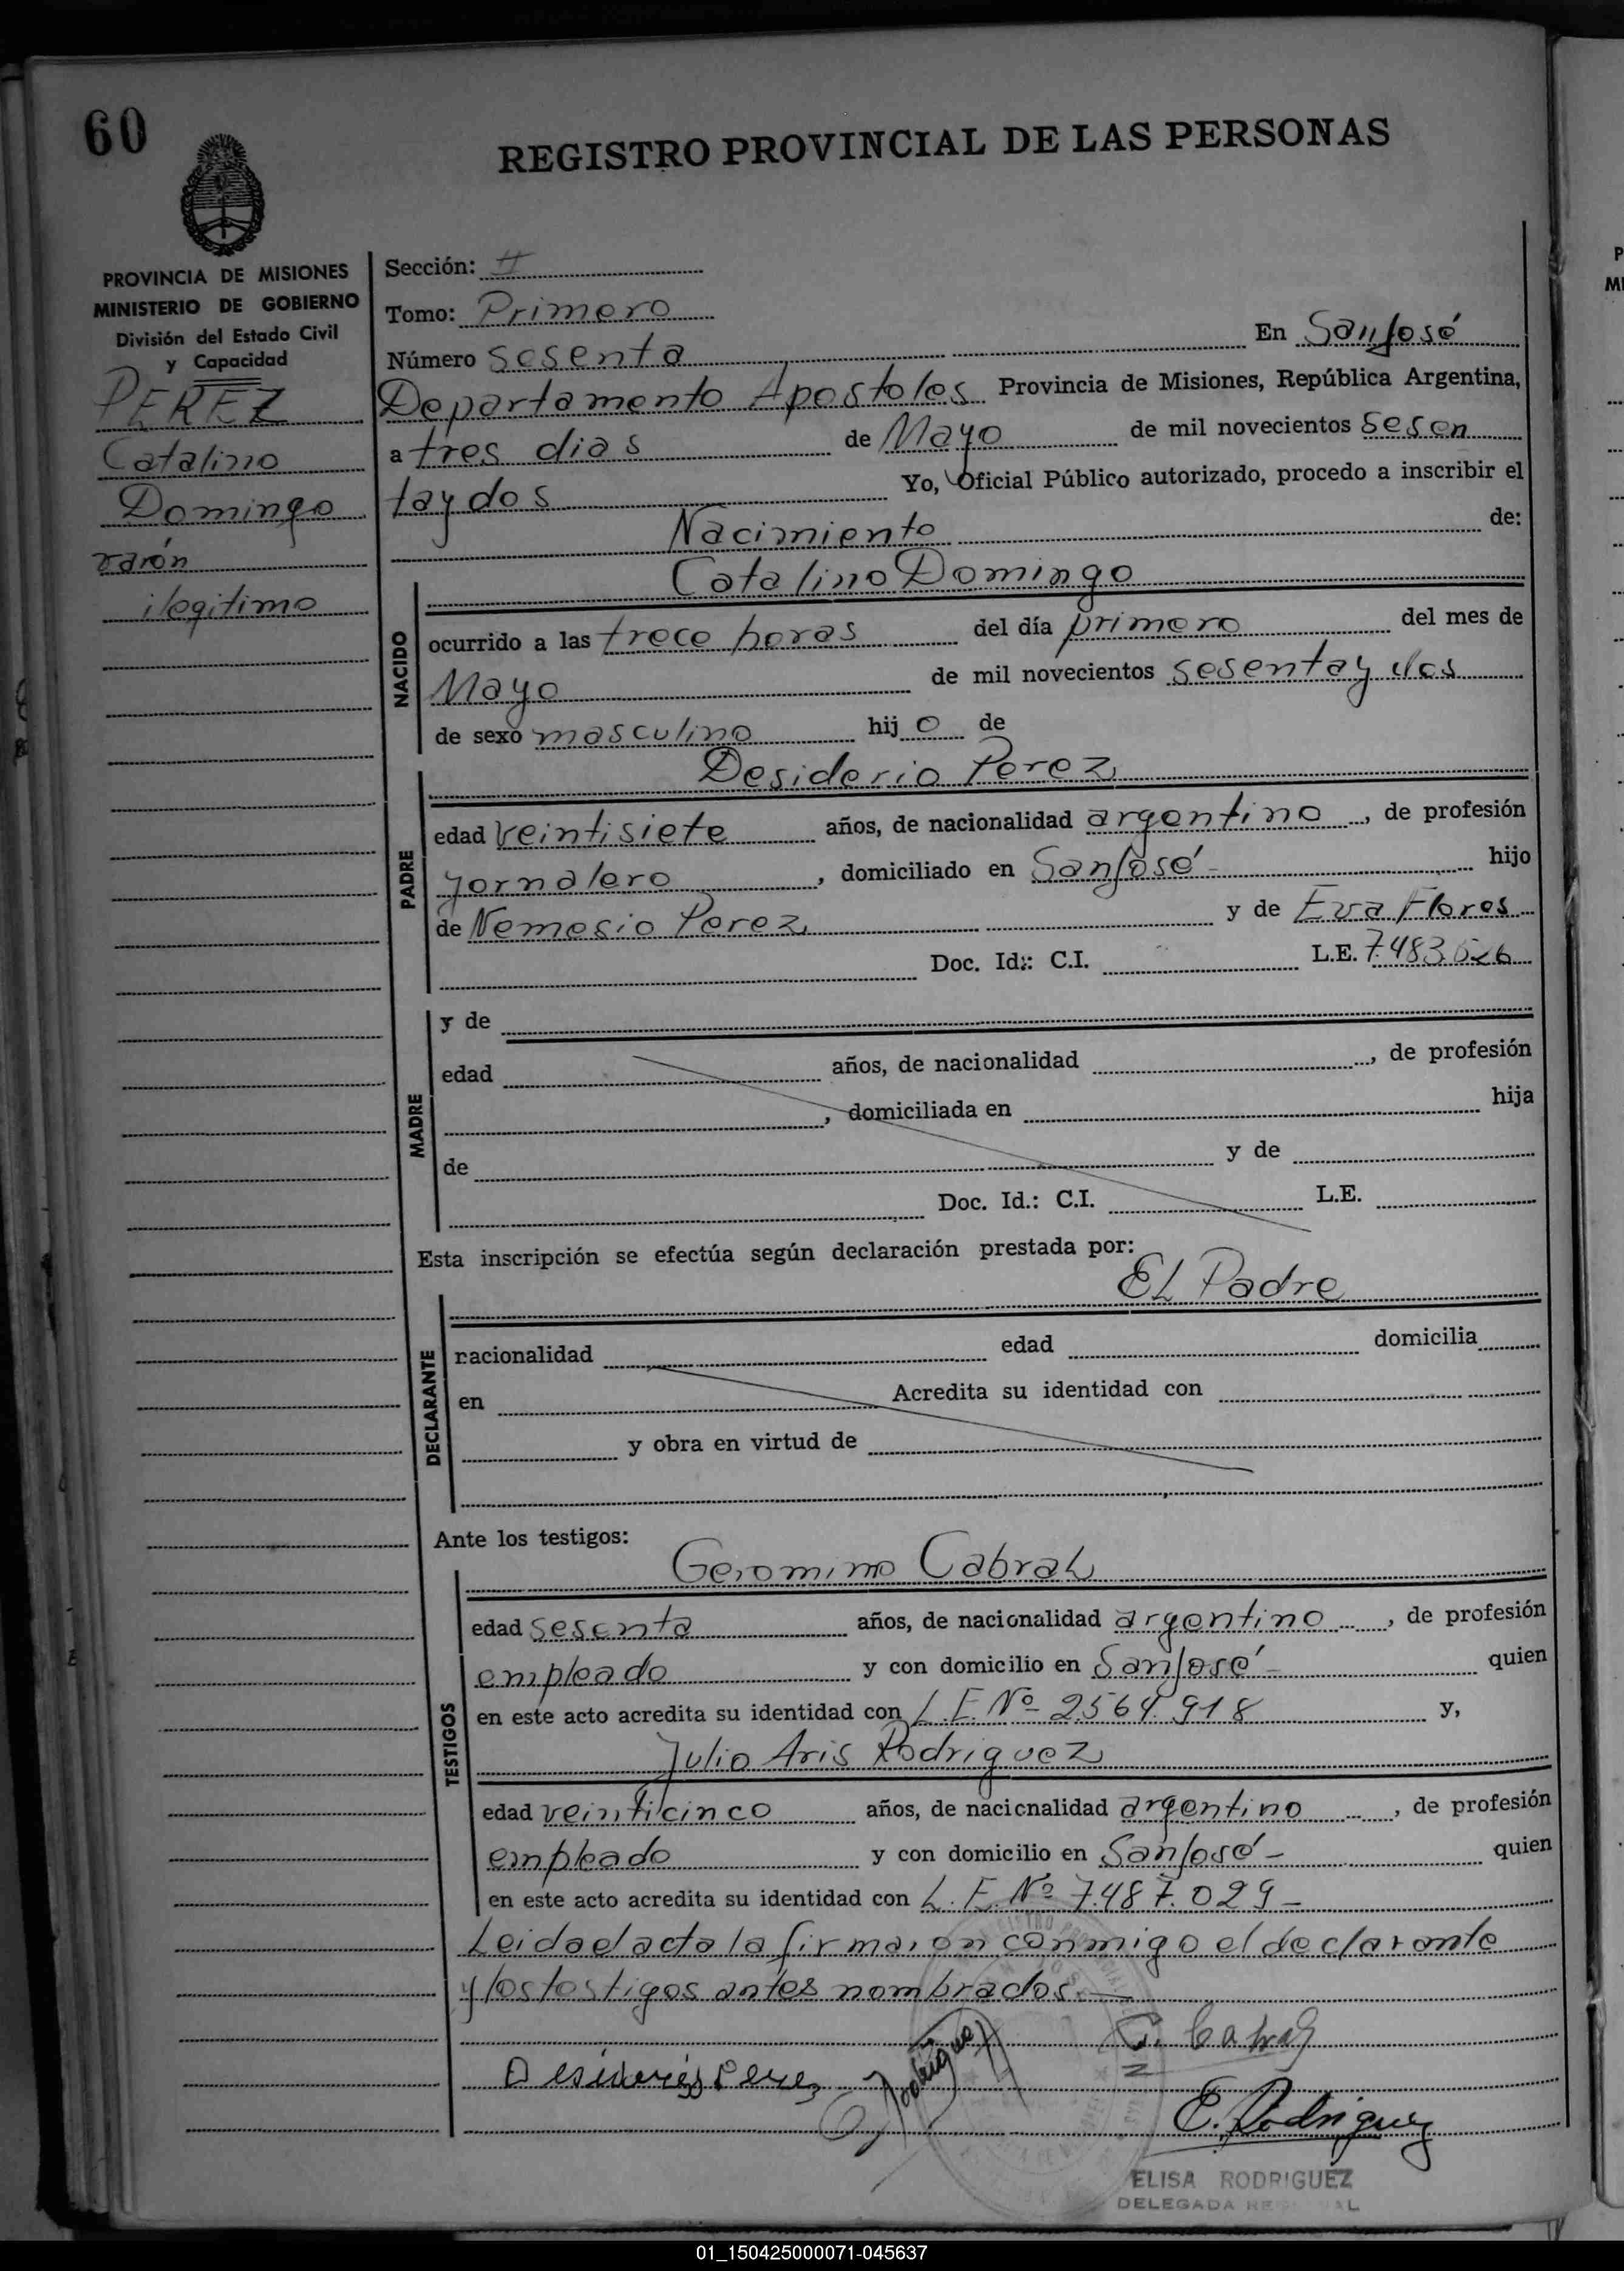 60
REGISTRO PROVINCIAL DE LAS PERSONAS
PROVINCIA DE MISIONES
MINISTERIO DE GOBIERNO
División del Estado Civil
y Capacidad
PEREZ
Catalino
Domingo
varón
ilegitimo
Sección: II
Tomo: Primero
Número sesenta En San José
Departamento Apostoles Provincia de Misiones, República Argentina,
a tres dias de Mayo de mil novecientos sesen
tay dos Yo, Oficial Público autorizado, procedo a inscribir el
Nacimiento de:
Catalino Domingo
NACIDO
ocurrido a las trece horas del día primero del mes de
Mayo de mil novecientos sesentay dos
de sexo masculino hijo de
Desiderio Perez
PADRE
edad veintisiete años, de nacionalidad argentino, de profesión
jornalero, domiciliado en San José - hijo
de Nemesio Perez y de Eva Flores
Doc. Id.: C.I. L.E. 7.483.526
MADRE
y de
edad años, de nacionalidad , de profesión
, domiciliada en hija
de y de
Doc. Id.: C.I. L.E.
Esta inscripción se efectúa según declaración prestada por:
EL Padre
DECLARANTE
nacionalidad edad domicilia
en Acredita su identidad con
y obra en virtud de
Ante los testigos:
Geronimo Cabral
TESTIGOS
edad sesenta años, de nacionalidad argentino, de profesión
empleado y con domicilio en San José - quien
en este acto acredita su identidad con L.E. Nº 2.564.918 y,
Julio Aris Rodriguez
edad veinticinco años, de nacionalidad argentino, de profesión
empleado y con domicilio en San José - quien
en este acto acredita su identidad con L.E. Nº 7.487.029 -
Leida el acta la firmaron conmigo el declarante
y los testigos antes nombrados. -
G. Cabral
Desiderio Perez
Rodriguez
E. Rodriguez
ELISA RODRIGUEZ
DELEGADA
01_150425000071-045637